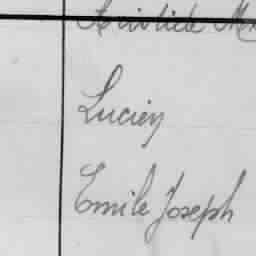 Lucien
Emile Joseph